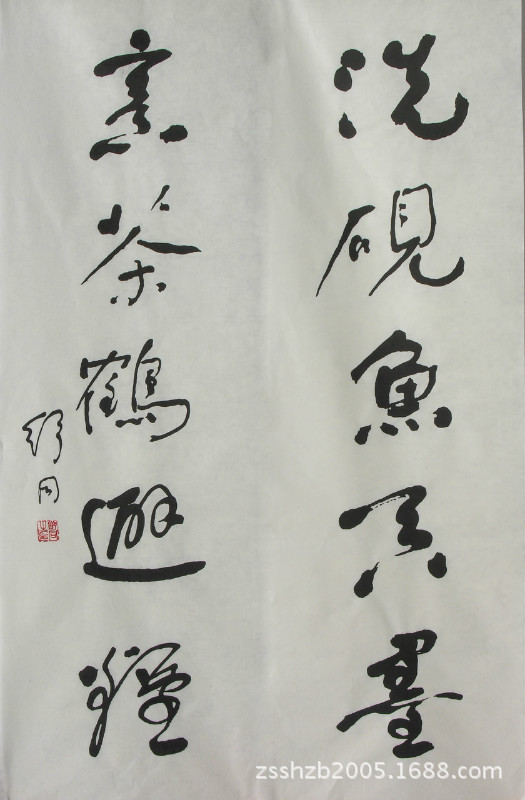 洗硯魚吞墨
烹茶鶴避煙
舒同
zsshzb2005.1688.com